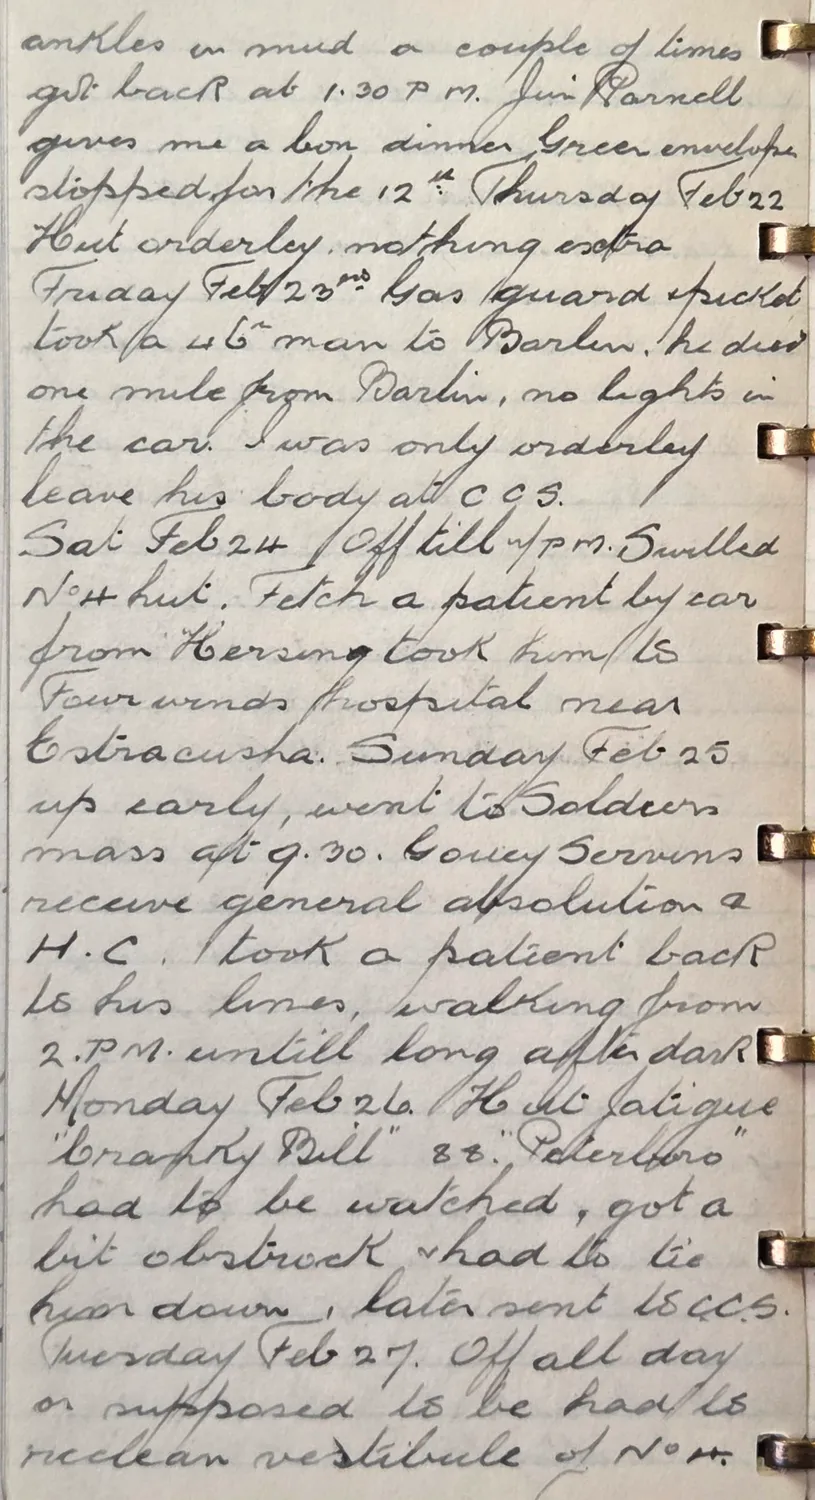 ankles in mud a couple of times
got back at 1.30 P M. Jim Parnell
gives me a bon dinner, Green envelope
stopped for the 12th Thursday Feb 22
Hut orderley. nothing extra
Friday Feb 23rd. Gas guard & picket
took a 46th man to Barlin. he died
one mile from Barlin, no lights in
the car. I was only orderley
leave his body at C C S.
Sat Feb 24 Off till 4 P M. Swilled
No 4 hut. Fetch a patient by car
from Hersing took him to
Four winds hospital near
Estracusha. Sunday Feb 25
up early, went to Soldiers
mass at 9.30. Gouey Servins
receive general absolution &
H. C. took a patient back
to his lines, walking from
2. P M. untill long after dark
Monday Feb 26. Hut fatigue
"Cranky Bill" 88. "Peterboro"
had to be watched, got a
bit obstrock & had to tie
him down, later sent to C.C.S.
Tuesday Feb 27. Off all day
or supposed to be had to
reclean vestibule of No 4.